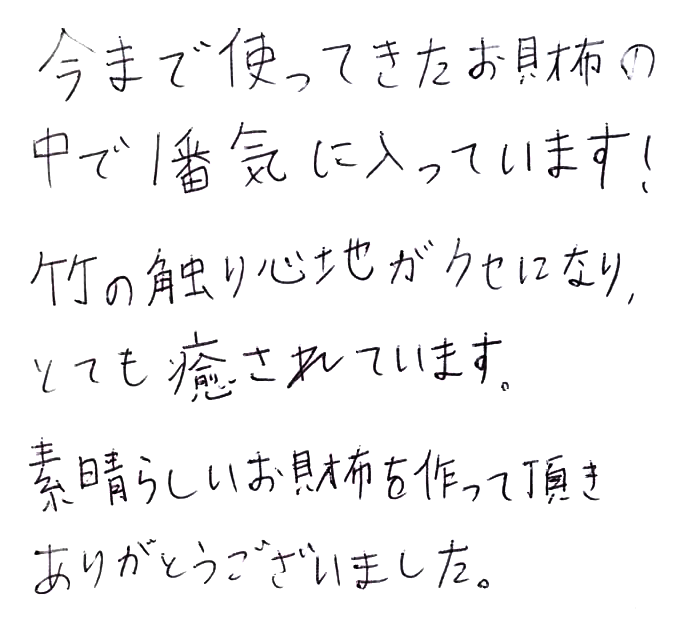 今まで使ってきたお財布の
中で1番気に入っています!
竹の触り心地がクセになり,
とても癒されています。
素晴らしいお財布を作って頂き
ありがとうございました。